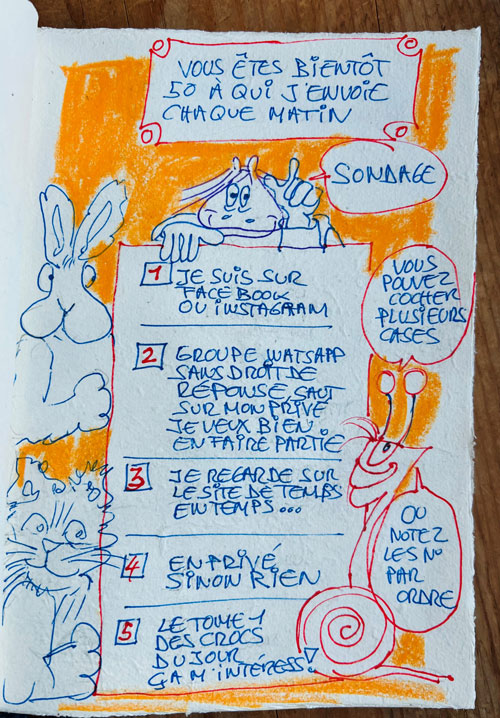 VOUS ÊTES BIENTÔT
50 À QUI J'ENVOIE
CHAQUE MATIN
SONDAGE
1 JE SUIS SUR
FACEBOOK
OU INSTAGRAM
VOUS
POUVEZ
COCHER
PLUSIEURS
CASES
2 GROUPE WATSAPP
SANS DROIT DE
RÉPONSE, SAUF
SUR MON PRIVÉ
JE VEUX BIEN
EN FAIRE PARTIE
3 JE REGARDE SUR
LE SITE DE TEMPS
EN TEMPS...
OU
NOTEZ
LES NO
PAR
ORDRE
4 EN PRIVÉ
SINON RIEN
5 LE TOME 1
DES CROCS
DU JOUR
ÇA M'INTÉRESS!